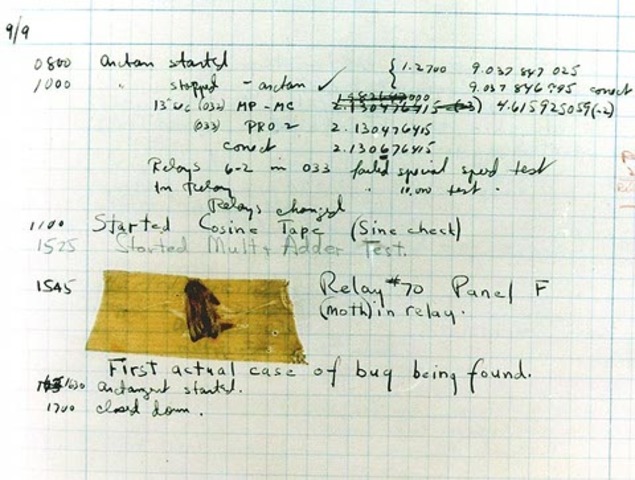 9/9
0800 Antan started
1000 " stopped - antan ✓ { 1.2700 9.037 847 025
9.037 846 995 correct
13"uc (032) MP - MC 2.130476415 (-3) 4.615925059(-2)
(033) PRO 2 2.130476415
correct 2.130676415
Relays 6-2 in 033 failed special speed test
In Relay " 10.000 test .
Relays changed
1100 Started Cosine Tape (Sine check)
1525 Started Mult + Adder Test.
1545 Relay #70 Panel F
(moth) in relay.
First actual case of bug being found.
1630 Antangent started.
1700 closed down .